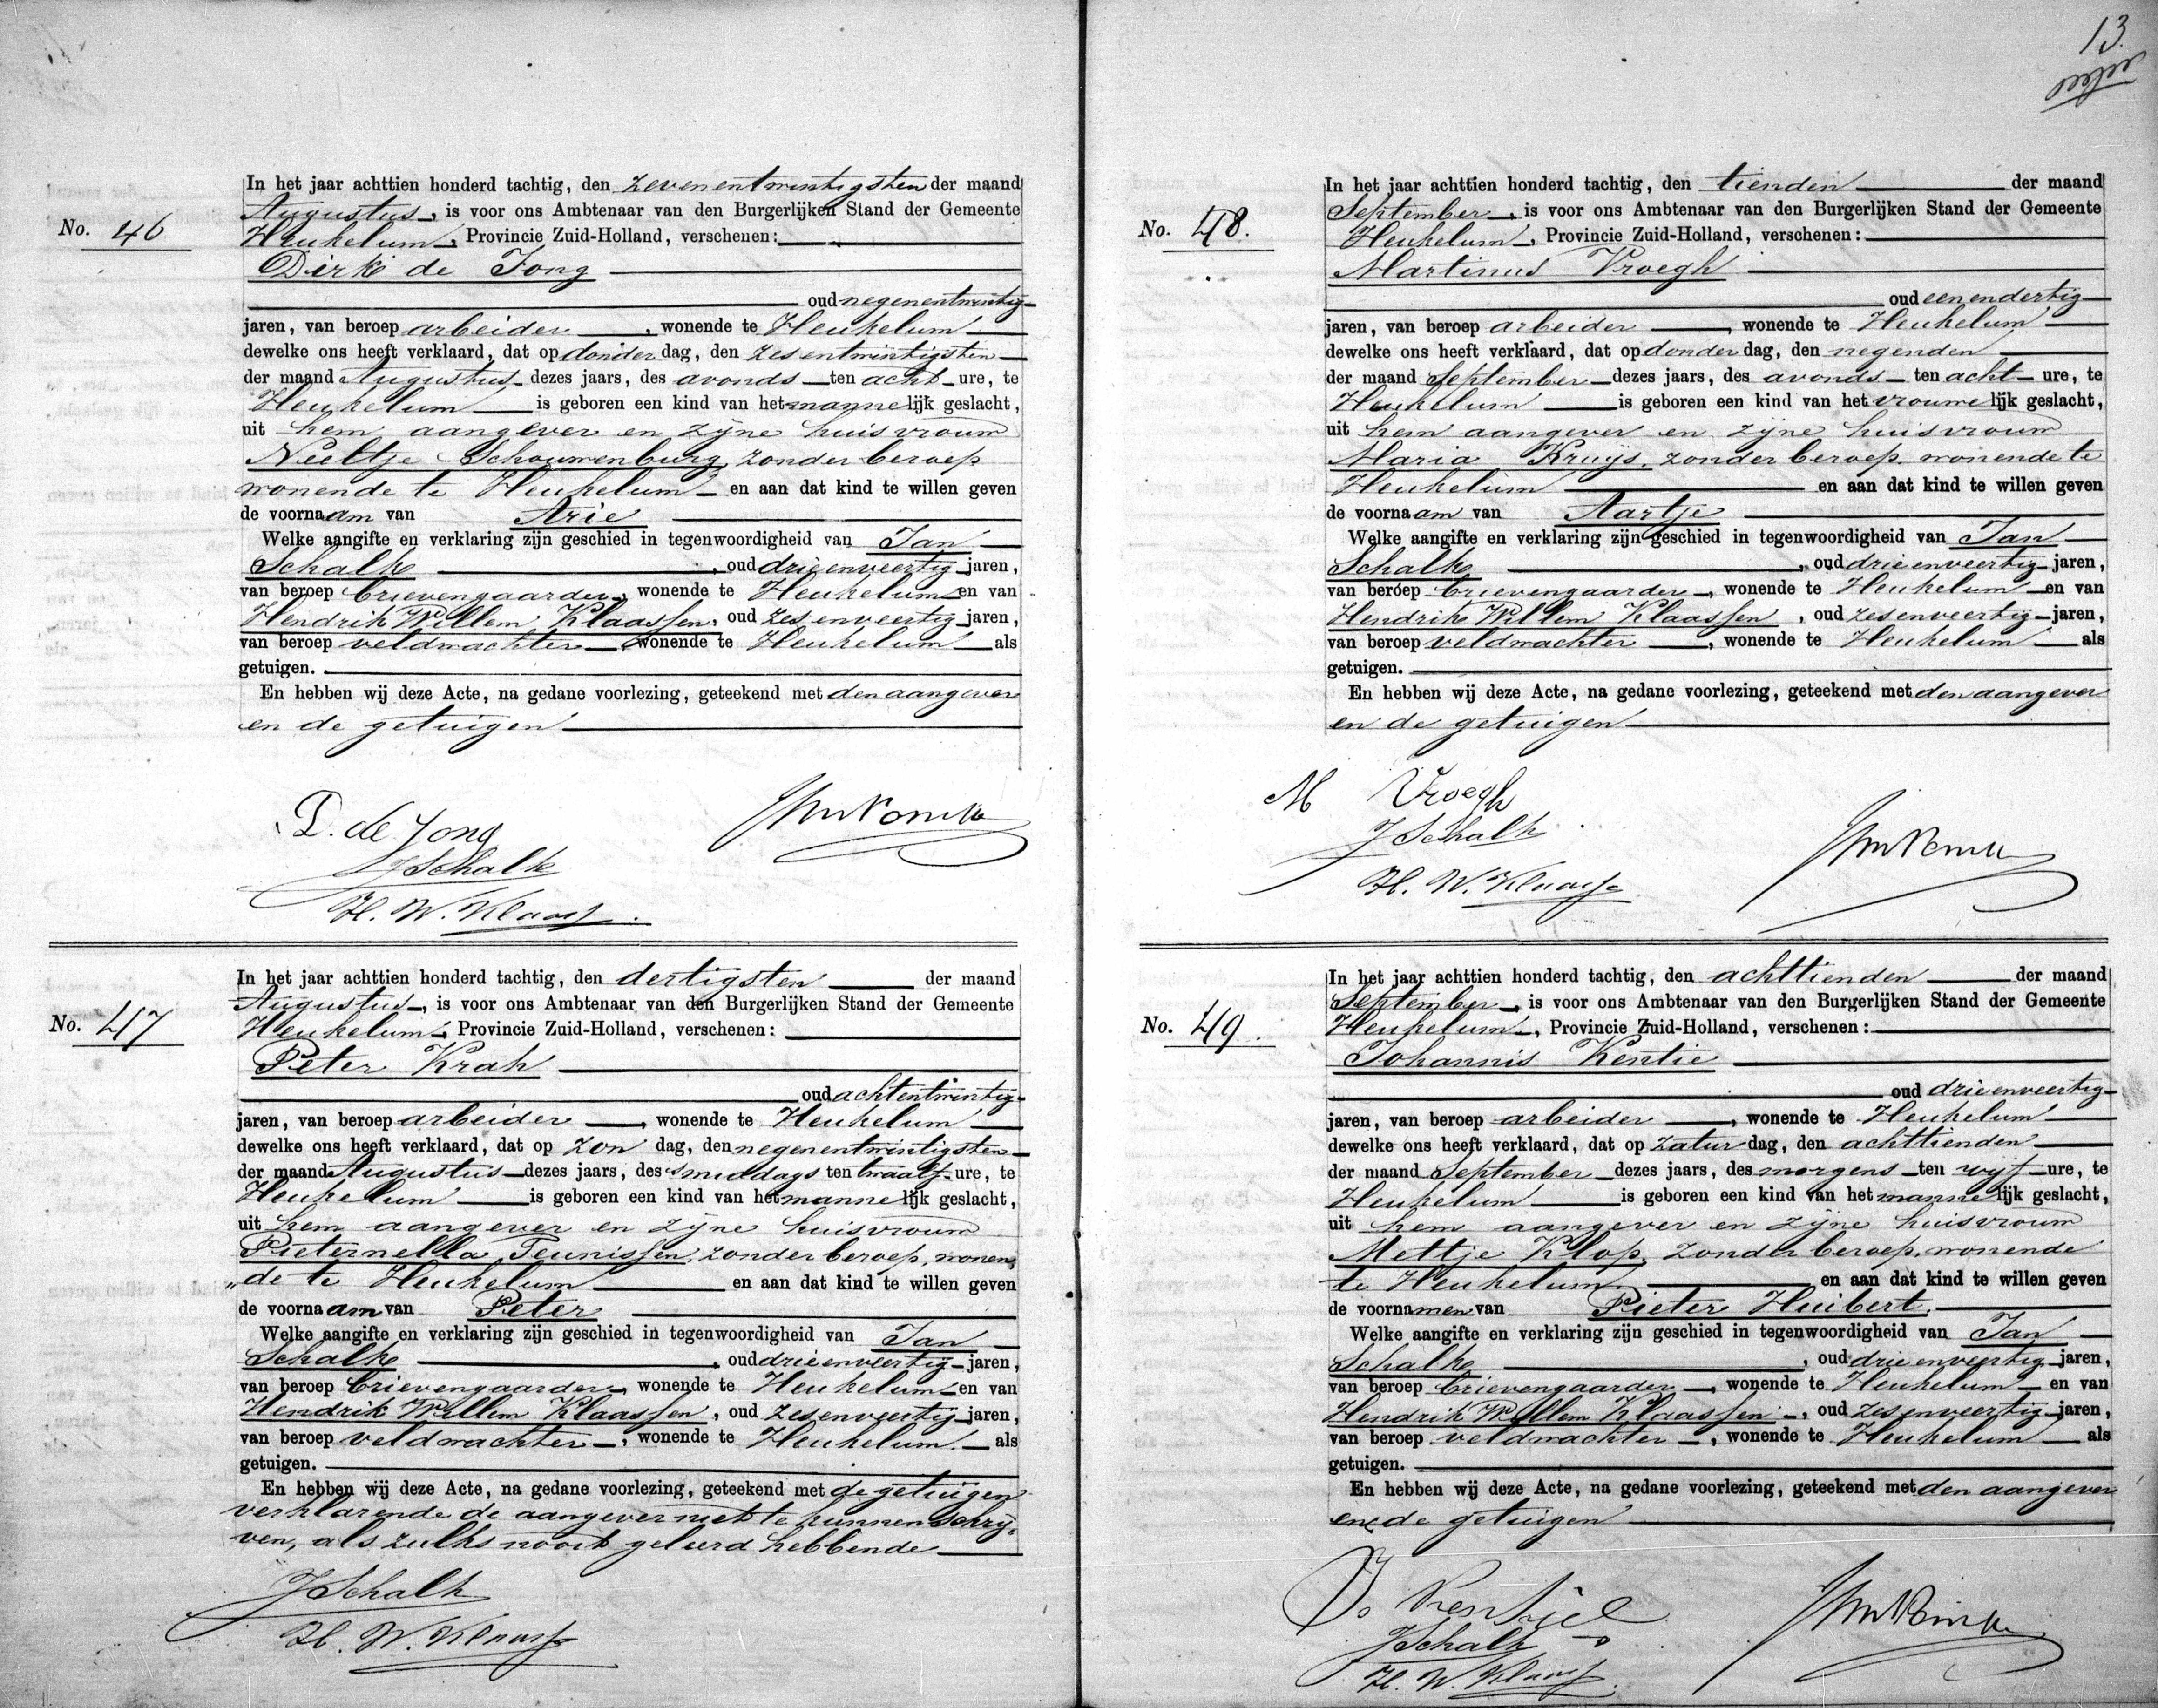 13.
No. 46
In het jaar achttien honderd tachtig, den zevenentwintigsten der maand
Augustus, is voor ons Ambtenaar van den Burgerlijken Stand der Gemeente
Heukelum, Provincie Zuid-Holland, verschenen:
Dirk de Jong
oud negenentwintig
jaren, van beroep arbeider, wonende te Heukelum
dewelke ons heeft verklaard, dat op donderdag, den zesentwintigsten
der maand Augustus dezes jaars, des avonds ten acht ure, te
Heukelum is geboren een kind van het mannelijk geslacht,
uit hem aangever en zijne huisvrouw
Neeltje Schouwenburg, zonder beroep
wonende te Heukelum en aan dat kind te willen geven
de voornaam van Arie
Welke aangifte en verklaring zijn geschied in tegenwoordigheid van Jan
Schalk, oud drieenveertig jaren,
van beroep brievengaarder, wonende te Heukelum en van
Hendrik Willem Klaassen, oud zesenveertig jaren,
van beroep veldwachter, wonende te Heukelum als
getuigen.
En hebben wij deze Acte, na gedane voorlezing, geteekend met den aangever
en de getuigen
D. de Jong
J Schalk
H. W. Klaass
No. 47
In het jaar achttien honderd tachtig, den dertigsten der maand
Augustus, is voor ons Ambtenaar van den Burgerlijken Stand der Gemeente
Heukelum, Provincie Zuid-Holland, verschenen:
Peter Krah
oud achtentwintig
jaren, van beroep arbeider, wonende te Heukelum
dewelke ons heeft verklaard, dat op zon dag, den negenentwintigsten
der maand Augustus dezes jaars, des smiddags ten twaalf ure, te
Heukelum is geboren een kind van het mannelijk geslacht,
uit hem aangever en zijne huisvrouw
Pieternella Teunissen, zonder beroep, wonen,
„de te Heukelum en aan dat kind te willen geven
de voornaam van Peter
Welke aangifte en verklaring zijn geschied in tegenwoordigheid van Jan
Schalk, oud drieenveertig jaren,
van beroep brievengaarder, wonende te Heukelum en van
Hendrik Willem Klaassen, oud zesenveertig jaren,
van beroep veldwachter, wonende te Heukelum. als
getuigen.
En hebben wij deze Acte, na gedane voorlezing, geteekend met de getuigen
verklarende de aangever niet te kunnen schrij=
ven, als zulks nooit geleerd hebbende
J Schalk
H. W. Klaass
No. 48.
In het jaar achttien honderd tachtig, den tienden der maand
September, is voor ons Ambtenaar van den Burgerlijken Stand der Gemeente
Heukelum, Provincie Zuid-Holland, verschenen:
Martinus Vroegh
oud eenendertig
jaren, van beroep arbeider, wonende te Heukelum
dewelke ons heeft verklaard, dat op donderdag, den negenden
der maand September dezes jaars, des avonds ten acht ure, te
Heukelum is geboren een kind van het vrouwelijk geslacht,
uit hem aangever en zijne huisvrouw
Maria Kruijs, zonder beroep, wonende te
Heukelum en aan dat kind te willen geven
de voornaam van Aartje
Welke aangifte en verklaring zijn geschied in tegenwoordigheid van Jan
Schalk, oud drieenveertig jaren,
van beroep brievengaarder, wonende te Heukelum en van
Hendrik Willem Klaassen, oud zesenveertig jaren,
van beroep veldwachter, wonende te Heukelum als
getuigen.
En hebben wij deze Acte, na gedane voorlezing, geteekend met den aangever
en de getuigen
M Vroegh
J Schalk
H. W. Klaass
No. 49.
In het jaar achttien honderd tachtig, den achttienden der maand
September, is voor ons Ambtenaar van den Burgerlijken Stand der Gemeente
Heukelum, Provincie Zuid-Holland, verschenen:
Johannis Kentie
oud drieenveertig
jaren, van beroep arbeider, wonende te Heukelum
dewelke ons heeft verklaard, dat op zaturdag, den achttienden
der maand September dezes jaars, des morgens ten vijf ure, te
Heukelum is geboren een kind van het mannelijk geslacht,
uit hem aangever en zijne huisvrouw
Mettje Klop, zonder beroep, wonende
te Heukelum en aan dat kind te willen geven
de voornamen van Pieter Huibert.
Welke aangifte en verklaring zijn geschied in tegenwoordigheid van Jan
Schalk, oud drieenveertig jaren,
van beroep brievengaarder, wonende te Heukelum en van
Hendrik Willem Klaassen, oud zesenveertig jaren,
van beroep veldwachter, wonende te Heukelum als
getuigen.
En hebben wij deze Acte, na gedane voorlezing, geteekend met den aangever
en de getuigen
J Schalk
H. W. Klaass